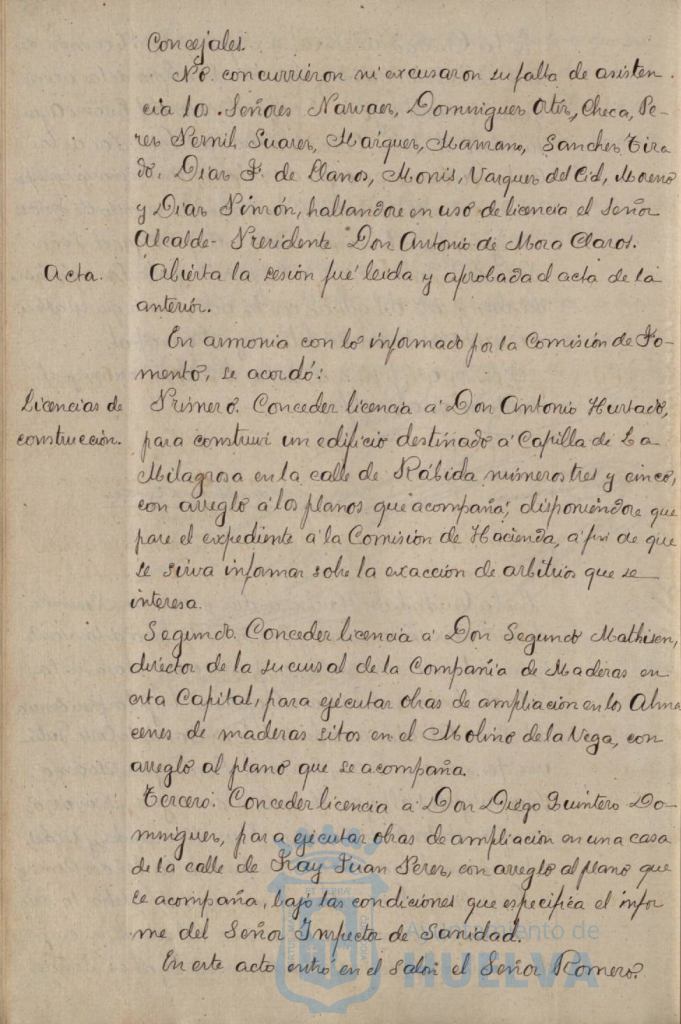 Concejales.
No concurrieron ni excusaron su falta de asisten-
cia los Señores Narvaez, Dominguez Ortiz, Checa, Pe-
rez Pernil, Suarez, Marquez, Manzano, Sanchez Tira
do, Diaz F. de Llanos, Monis, Vazquez del Cid, Moreno
y Diaz Pinzón, hallandose en uso de licencia el Señor
Alcalde-Presidente Don Antonio de Mora Claros.
Acta. Abierta la sesión fué leida y aprobada el acta de la
anterior.
En armonia con lo informado por la Comisión de Fo-
mento, se acordó:
Licencias de Primero. Conceder licencia á Don Antonio Hurtado,
construcción. para construir un edificio destinado á Capilla de La
Milagrosa en la calle de Rábida números tres y cinco,
con arreglo á los planos que acompaña; disponiendose que
pase el expediente á la Comisión de Hacienda, á fin de que
se sirva informar sobre la exacción de arbitrios que se
interesa.
Segundo. Conceder licencia á Don Segundo Mathisen,
director de la sucursal de la Compañia de Maderas en
esta Capital, para ejecutar obras de ampliación en los Alma
cenes de maderas sitos en el Molino de la Vega, con
arreglo al plano que se acompaña.
Tercero. Conceder licencia á Don Diego Quintero Do-
minguez, para ejecutar obras de ampliación en una casa
de la calle de Fray Juan Perez, con arreglo al plano que
se acompaña, bajo las condiciones que especifica el infor
me del Señor Inspector de Sanidad.
En este acto entró en el salón el Señor Romero.
Ayuntamiento de
HUELVA